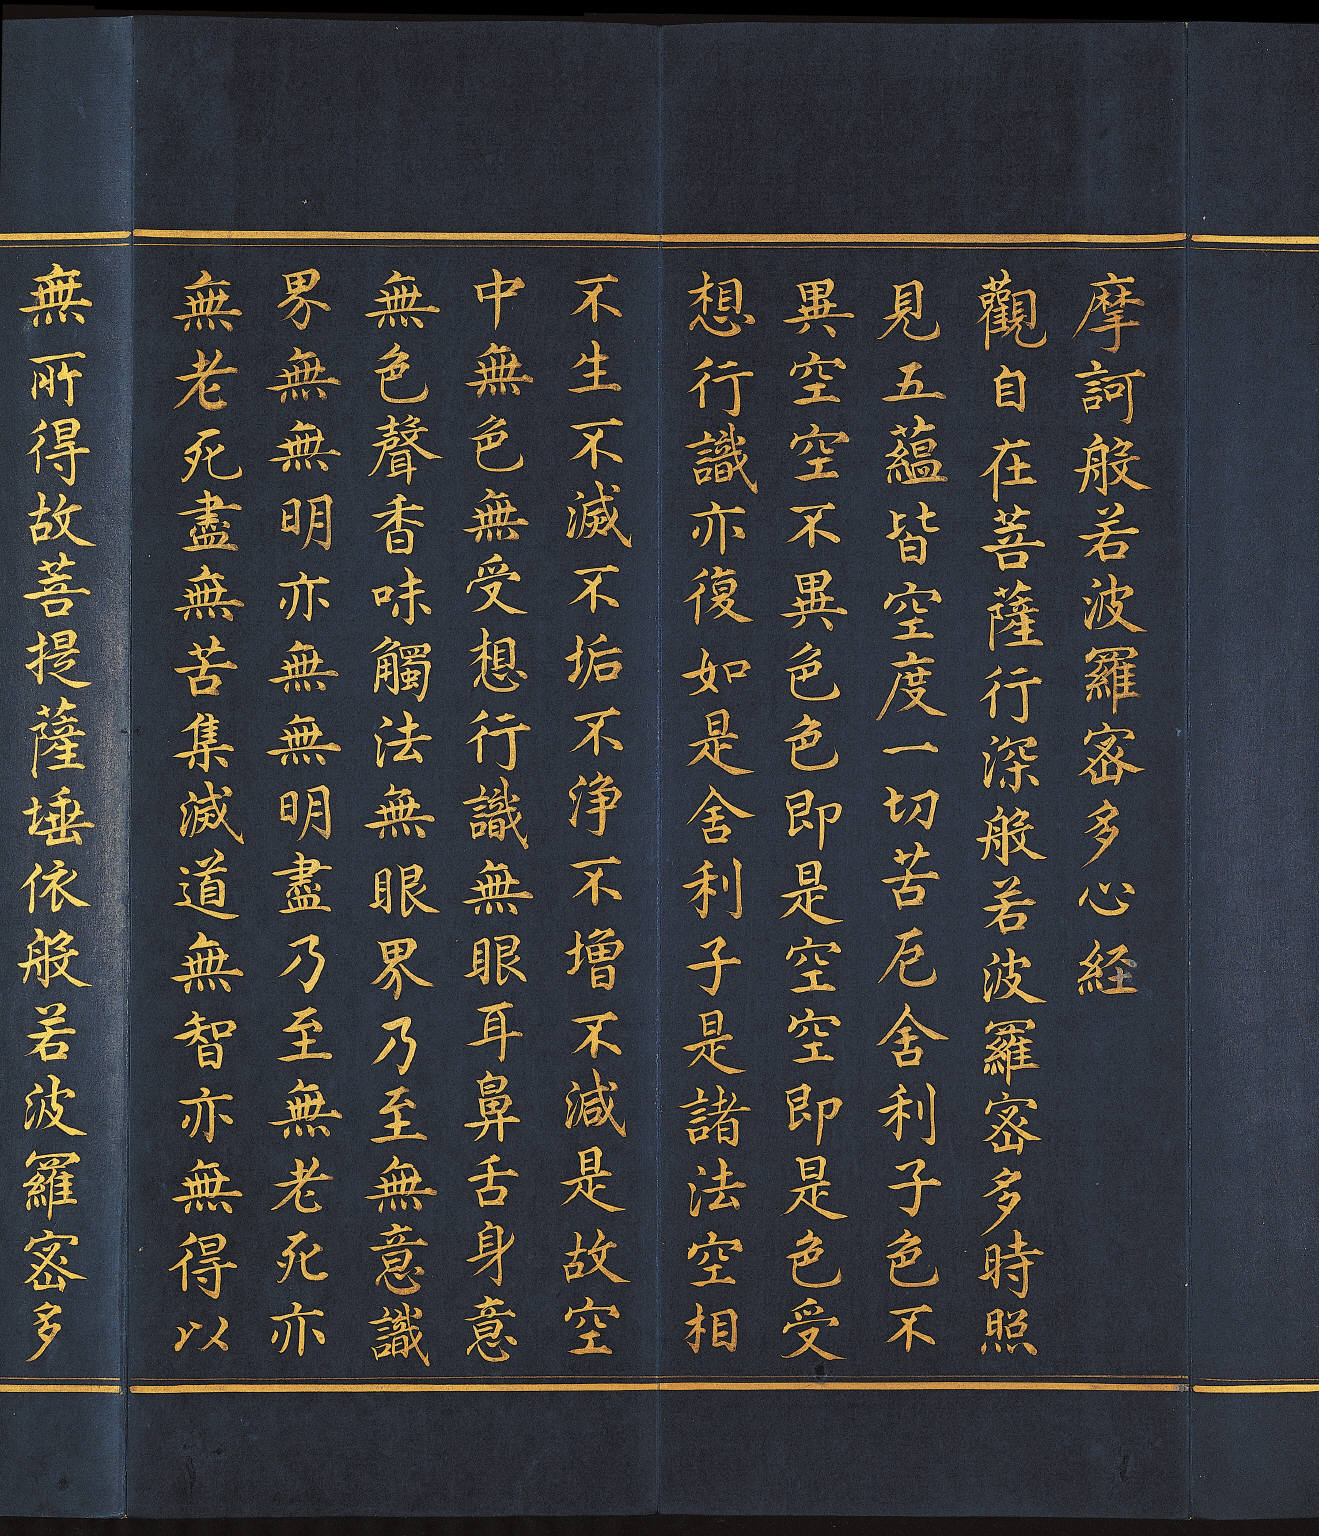 摩訶般若波羅蜜多心経
觀自在菩薩行深般若波羅蜜多時照
見五蘊皆空度一切苦厄舍利子色不
異空空不異色色即是空空即是色受
想行識亦復如是舍利子是諸法空相
不生不滅不垢不浄不増不減是故空
中無色無受想行識無眼耳鼻舌身意
無色聲香味觸法無眼界乃至無意識
界無無明亦無無明盡乃至無老死亦
無老死盡無苦集滅道無智亦無得以
無所得故菩提薩埵依般若波羅蜜多